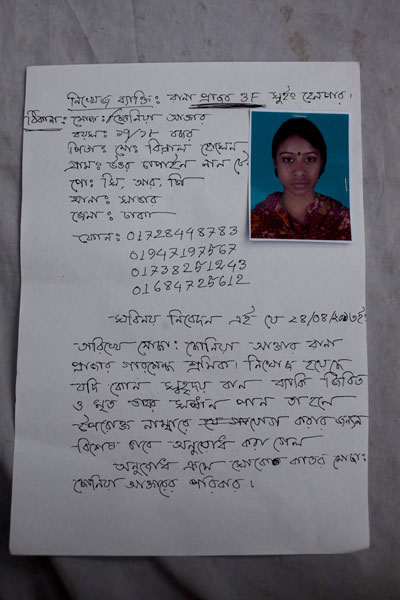 নিখোজ ব্যাক্তি: রানা প্লাজার 3F সুইং হেলপার।
ঠিকানা: মোছা: সোনিয়া আক্তার
বয়স: ১৭/১৮ বছর
পিতা: মো: বিল্লাল হোসেন
গ্রাম: উওর চাপাইন লাল টে
পো: সি, আর, পি
থানা: সাভার
জেলা: ঢাকা
ফোন: 01728448783
01947197567
01738251243
01684725612
সবিনয় নিবেদন এই যে ২৪/০৪/২০১৩ইং
তারিখে মোছা: সোনিয়া আক্তার রানা
প্লাজার গার্মেন্টস শ্রমিক। নিখোজ হয়েছে
যদি কোন সুহৃদয় বান ব্যাক্তি জিবিত
ও মৃত তার সন্ধান পান তাহলে
উপরোক্ত নাম্বারে যোগাযোগ করার জন্য
বিশেষ ভাবে অনুরোধ করা গেল
অনুরোধ ক্রমে মোছা:
সোনিয়া আক্তারের পরিবার।